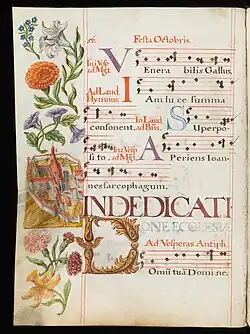 56. Festa Octobris.
In i Vesp. ad Mgt. V Enera bilis Gallus,
Ad Laud. Hymnus. I Am lu ce summa
consonent. In Laud. ad Bñs. S Uper po
sito. In ii Vesp. ad Mgt. A Periens Ioan-
nes sarcophagum.
IN DEDICATI
ONE ECCLESIAE
Ad Vesperas Antiph.
Domũ tuã Domine,